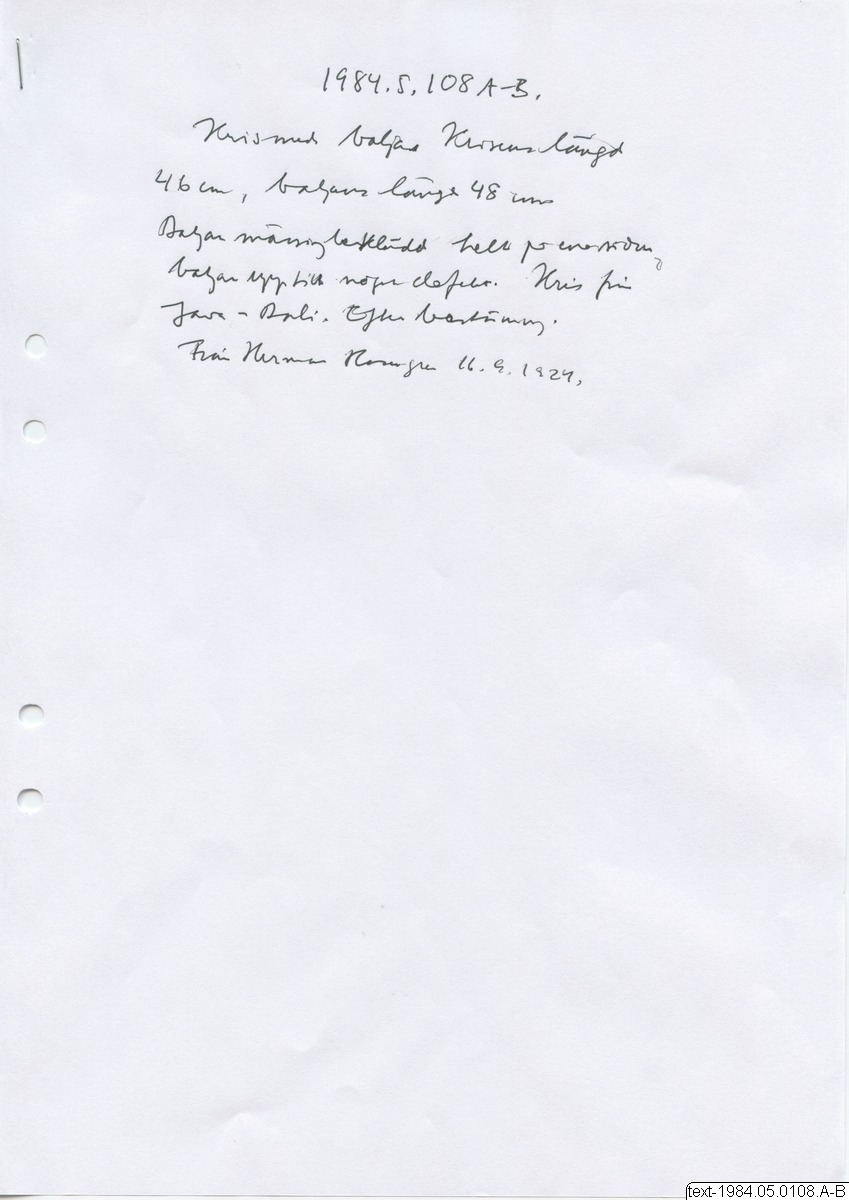 1984.5.108 A-B.
Kris med balja. Krisens längd
46 cm, baljans längd 48 cm
Baljan mässingbeklädd helt på ena sidan,
baljan upptill något defekt. Kris från
Java - Bali. Efter bestämning.
Från Herman 16.9.1924.
text-1984.05.0108.A-B